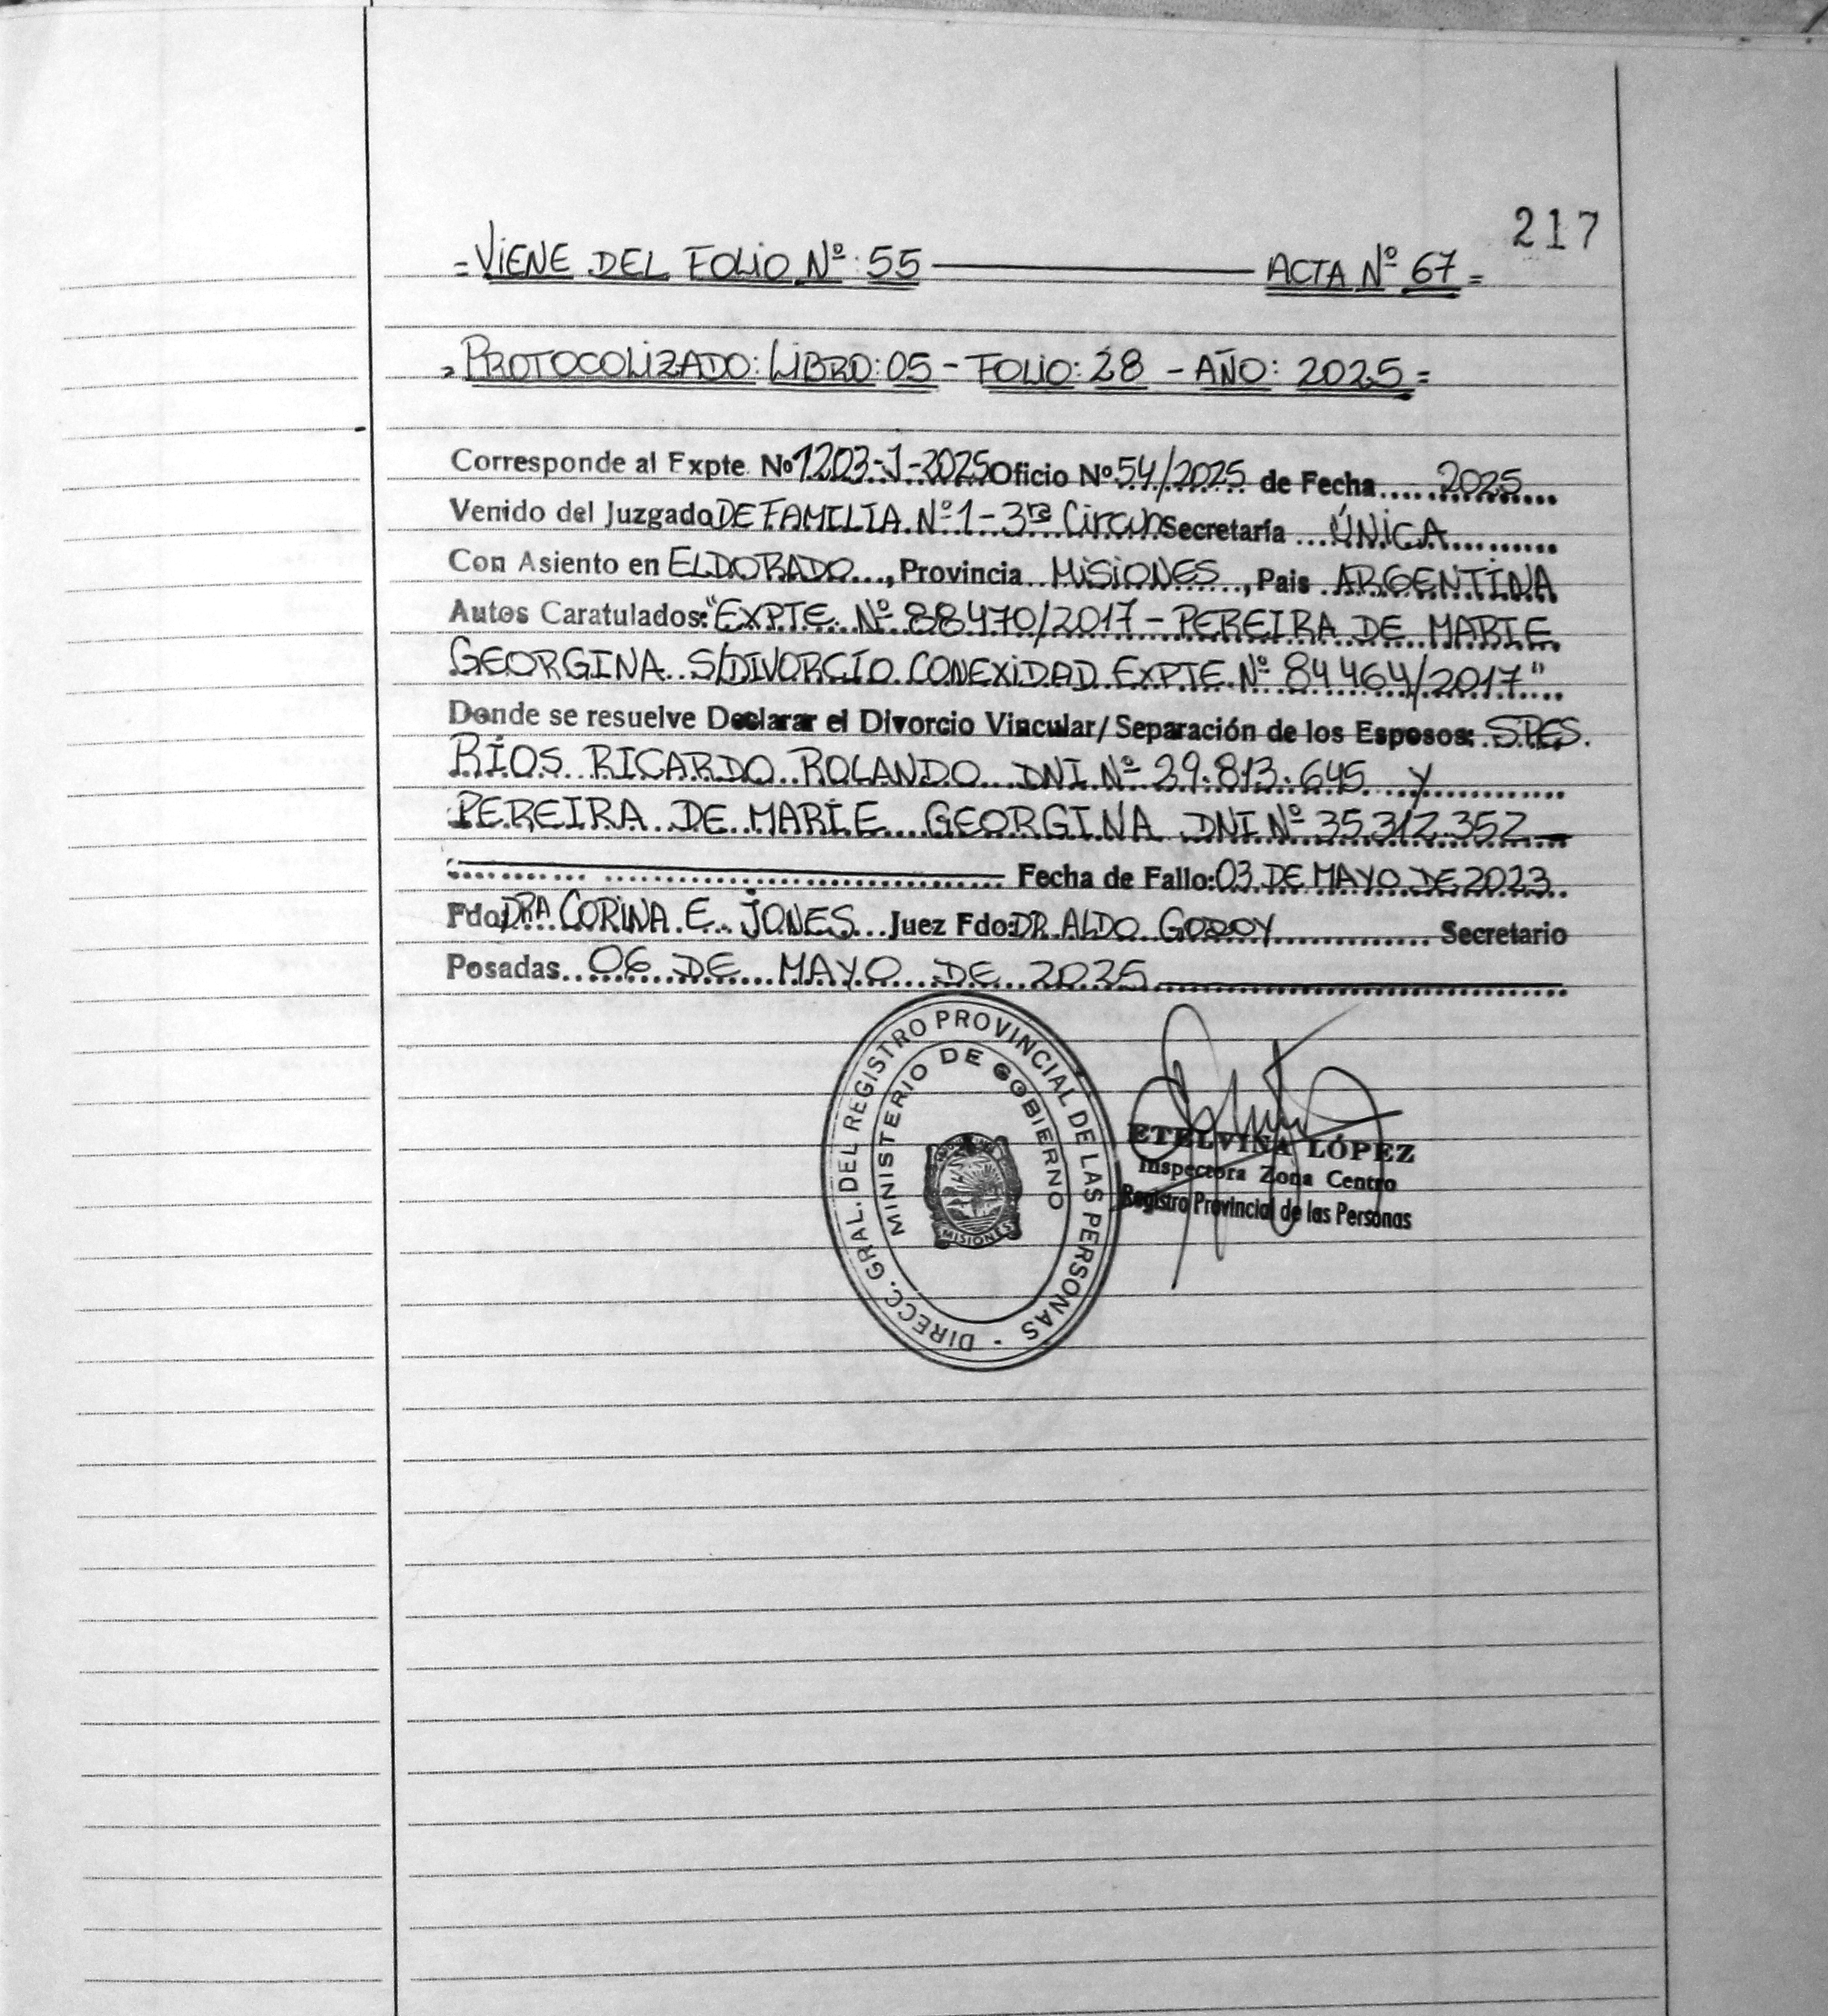 217
=VIENE DEL FOLIO Nº: 55 ACTA Nº 67=
=PROTOCOLIZADO: LIBRO: 05 - FOLIO: 28 - AÑO: 2025=
Corresponde al Expte. Nº 1203-J-2025 Oficio Nº 54/2025 de Fecha .... 2025
Venido del Juzgado DE FAMILIA Nº 1 - 3ra Circun Secretaría ... ÚNICA
Con Asiento en ELDORADO ..., Provincia MISIONES, Pais ARGENTINA
Autos Caratulados: "EXPTE. Nº 88470/2017 - PEREIRA DE MARIE
GEORGINA S/DIVORCIO CONEXIDAD EXPTE Nº 84464/2017"
Donde se resuelve Declarar el Divorcio Vincular/Separación de los Esposos: SRES.
RÍOS RICARDO ROLANDO DNI Nº 29.813.645 y
PEREIRA DE MARIE GEORGINA DNI Nº 35.312.352
Fecha de Fallo: 03 DE MAYO DE 2023
Fdo: DRA CORINA E. JONES Juez Fdo: DR. ALDO GODOY Secretario
Posadas 06 DE MAYO DE 2025
DIRECC. GRAL. DEL REGISTRO PROVINCIAL DE LAS PERSONAS -
MINISTERIO DE GOBIERNO
MISIONES
ETELVINA LÓPEZ
Inspectora Zona Centro
Registro Provincial de las Personas